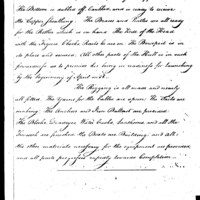 The Bottom is caulked off Curlthur, and is ready to receive
the Copper sheathing. The Braces and Pintles are all ready
for the Rudder which is in hand. The Knee of the Head
with the Figure Charles Rawle to use on. The Bowsprit is in
its place and is secure. All other parts of the Hull is in such
forwardness as to promise her being in readiness for launching
by the beginning of April next.
The Rigging is all made and nearly
all fitted. The Yarns for the Cables are spun. The Sails are
making. The Anchors and Iron Ballast are procured.
The Blocks, Deadeyes, Water Casks, Lanthorns and all the
Ironwork are finished the Boats are Building and all
the other materials necessary for the equipment are procured,
and all parts progress rapidly towards Completion.